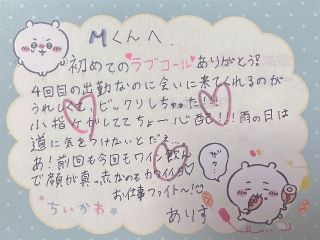 Mくんへ.
初めてのラブコールありがとう!
4回目の出勤なのに会いに来てくれるのが
うれしくて、ビックリしちゃった!!!
小指ケガしててちょー心配!!雨の日は
道に気をつけたいとだネ...
あ!前回も今回もワイン飲ん
で顔が真っ赤なのもカワイイ
お仕事ファイト〜!
ガ...!
ちいかわ
ありす